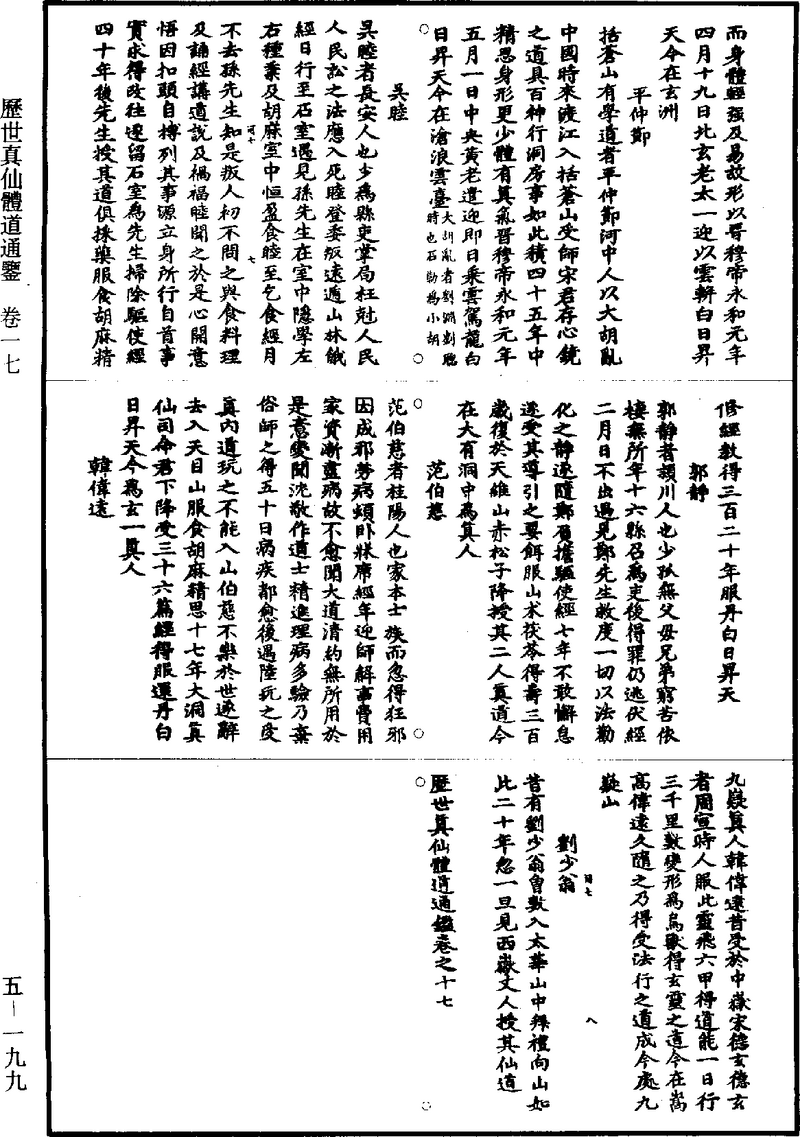 而身體輕强反易故形以晋穆帝永和元年
四月十九日北玄老太一迎以雲軿白日昇
天今在玄洲
平仲節
括蒼山有學道者平仲節河中人以大胡亂
中國時來渡江入括蒼山受師宋君存心鏡
之道具百神行洞房事如此積四十五年中
精思身形更少體有真氣晋穆帝永和元年
五月一日中央黃老遣迎即日乘雲駕龍白
日昇天今在滄浪雲臺大胡亂者劉淵劉聰
時也石勒爲小胡
吳睦
吳睦者長安人也少爲縣吏掌局枉尅人民
人民訟之法應入死睦登委叛遠遁山林餓
經日行至石室遇見孫先生在室中隱學左
右種黍及胡麻室中恒盈食睦至乞食經月
不去孫先生知是叛人初不問之與食料理
及誦經講道說及禍福睦聞之於是心開意
悟因扣頭自搏列其事源立身所行自首事
實求得改往遂留石室爲先生掃除驅使經
四十年後先生授其道俱採藥服食胡麻精
修經教得三百二十年服丹白日昇天
郭靜
郭靜者潁川人也少孤無父母兄弟窮苦依
棲無所年十六縣召爲吏後得罪仍逃伏經
二月日不出遇見鄭先生救度一切以法勸
化之靜遂隨鄭負擔驅使經七年不敢懈怠
遂受其導引之要餌服山朮茯苓得壽三百
歲復於天維山赤松子降授其二人真道今
在大有洞中爲真人
范伯慈
范伯慈者桂陽人也家本士族而忽得狂邪
因成邪勞病頓臥牀席經年迎師解事費用
家資漸盡病故不愈聞大道清約無所用於
是意變聞沈敬作道士精進理病多驗乃棄
俗師之得五十日病疾都愈後遇陸玩之受
真內道玩之不能入山伯慈不樂於世遂辭
去入天目山服食胡麻精思十七年大洞真
仙司命君下降受三十六篇經得服還丹白
日昇天今爲玄一真人
韓偉遠
九嶷真人韓偉遠昔受於中嶽宋德玄德玄
者周宣時人服此靈飛六甲得道能一日行
三千里數變形爲鳥獸得玄靈之道今在嵩
高偉遠久隨之乃得受法行之道成今處九
嶷山
劉少翁
昔有劉少翁曾數入太華山中拜禮向山如
此二十年忽一旦見西嶽丈人授其仙道
歷世真仙體道通鑑卷之十七
歷世真仙體道通鑒 卷一七
五—一九九